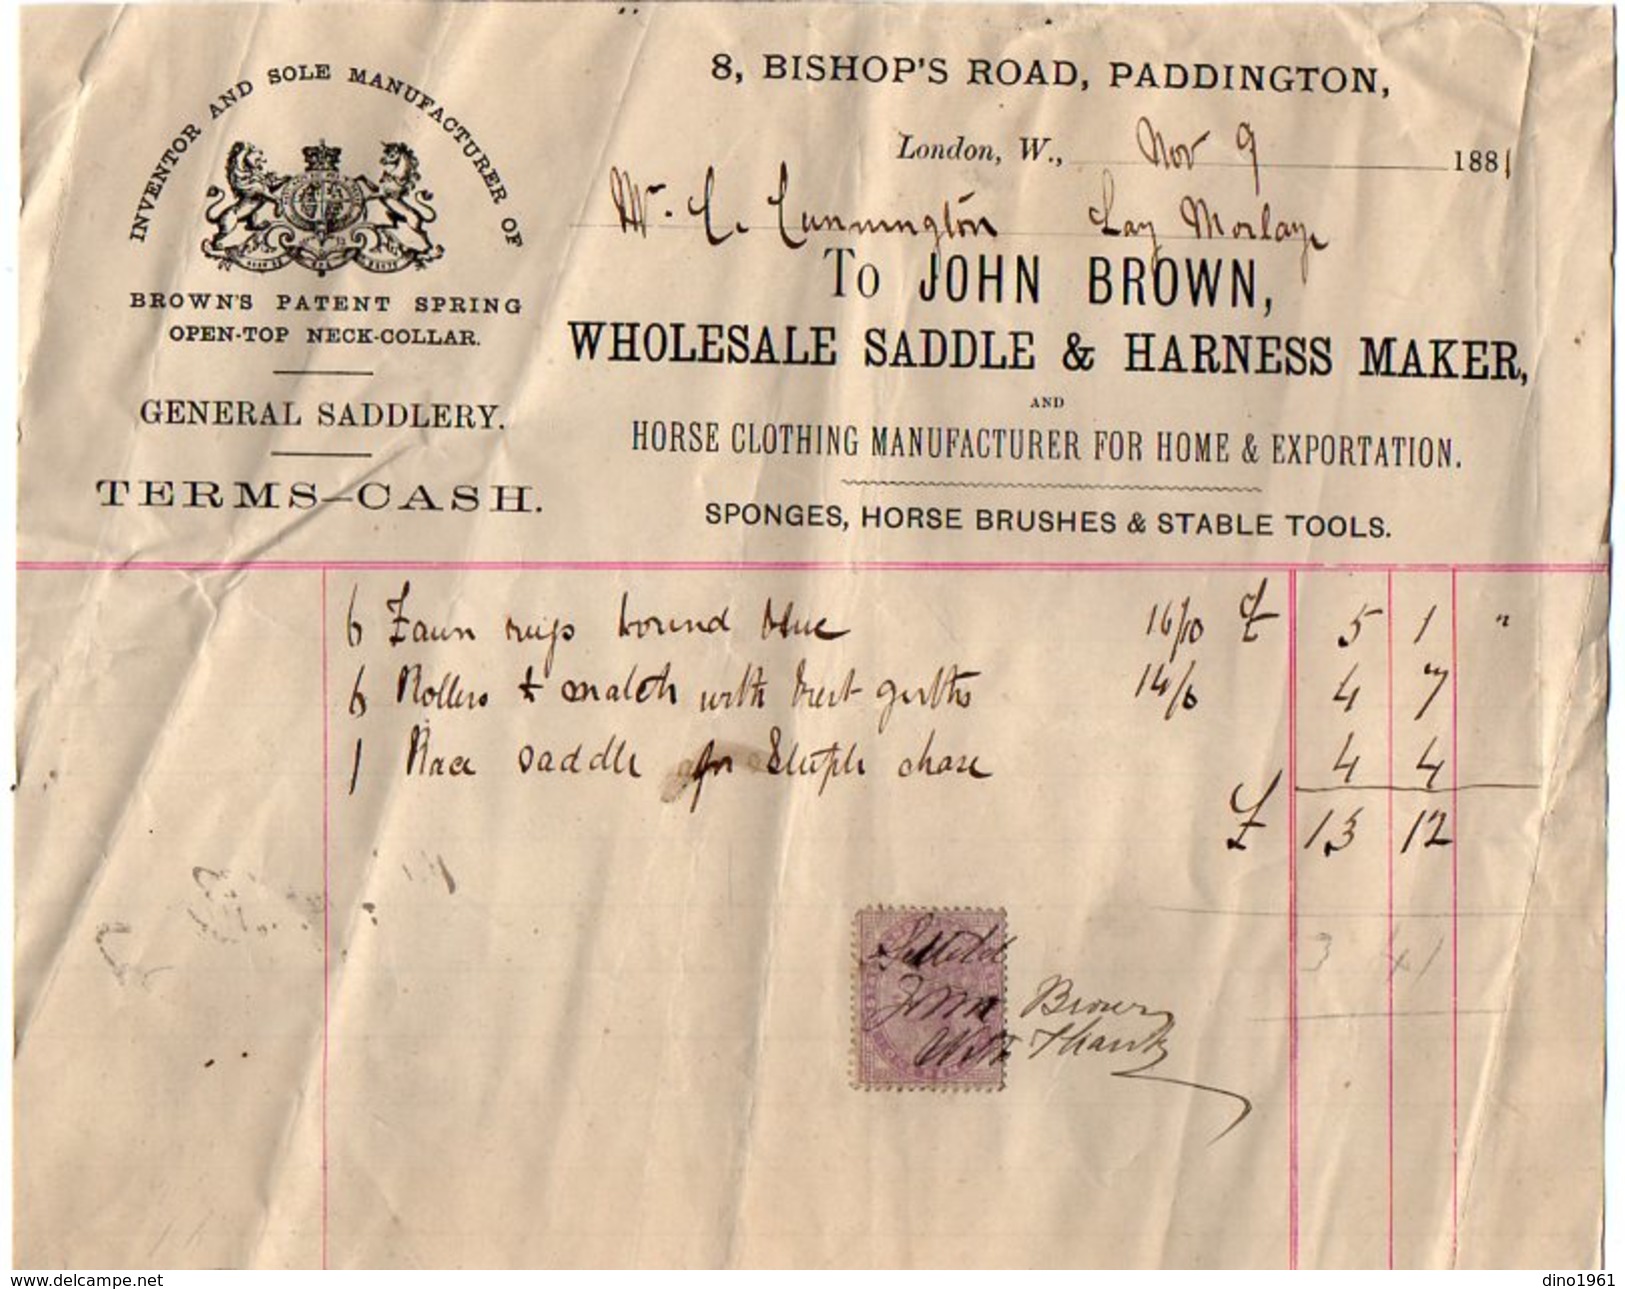 INVENTOR AND SOLE MANUFACTURER OF
BROWN'S PATENT SPRING
OPEN-TOP NECK-COLLAR.
GENERAL SADDLERY.
TERMS-CASH.
8, BISHOP'S ROAD, PADDINGTON,
London, W., Nov 9 1881
Mr. C. Cunnington
To JOHN BROWN,
WHOLESALE SADDLE & HARNESS MAKER,
AND
HORSE CLOTHING MANUFACTURER FOR HOME & EXPORTATION.
SPONGES, HORSE BRUSHES & STABLE TOOLS.
6 Fawn rugs bound blue 16/10 £ 5 1 "
6 Rollers to match with brest girths 14/6 4 7
1 Race saddle for Steeple chase 4 4
£ 13 12
Settled
John Brown
With Thanks
www.delcampe.net
dino1961